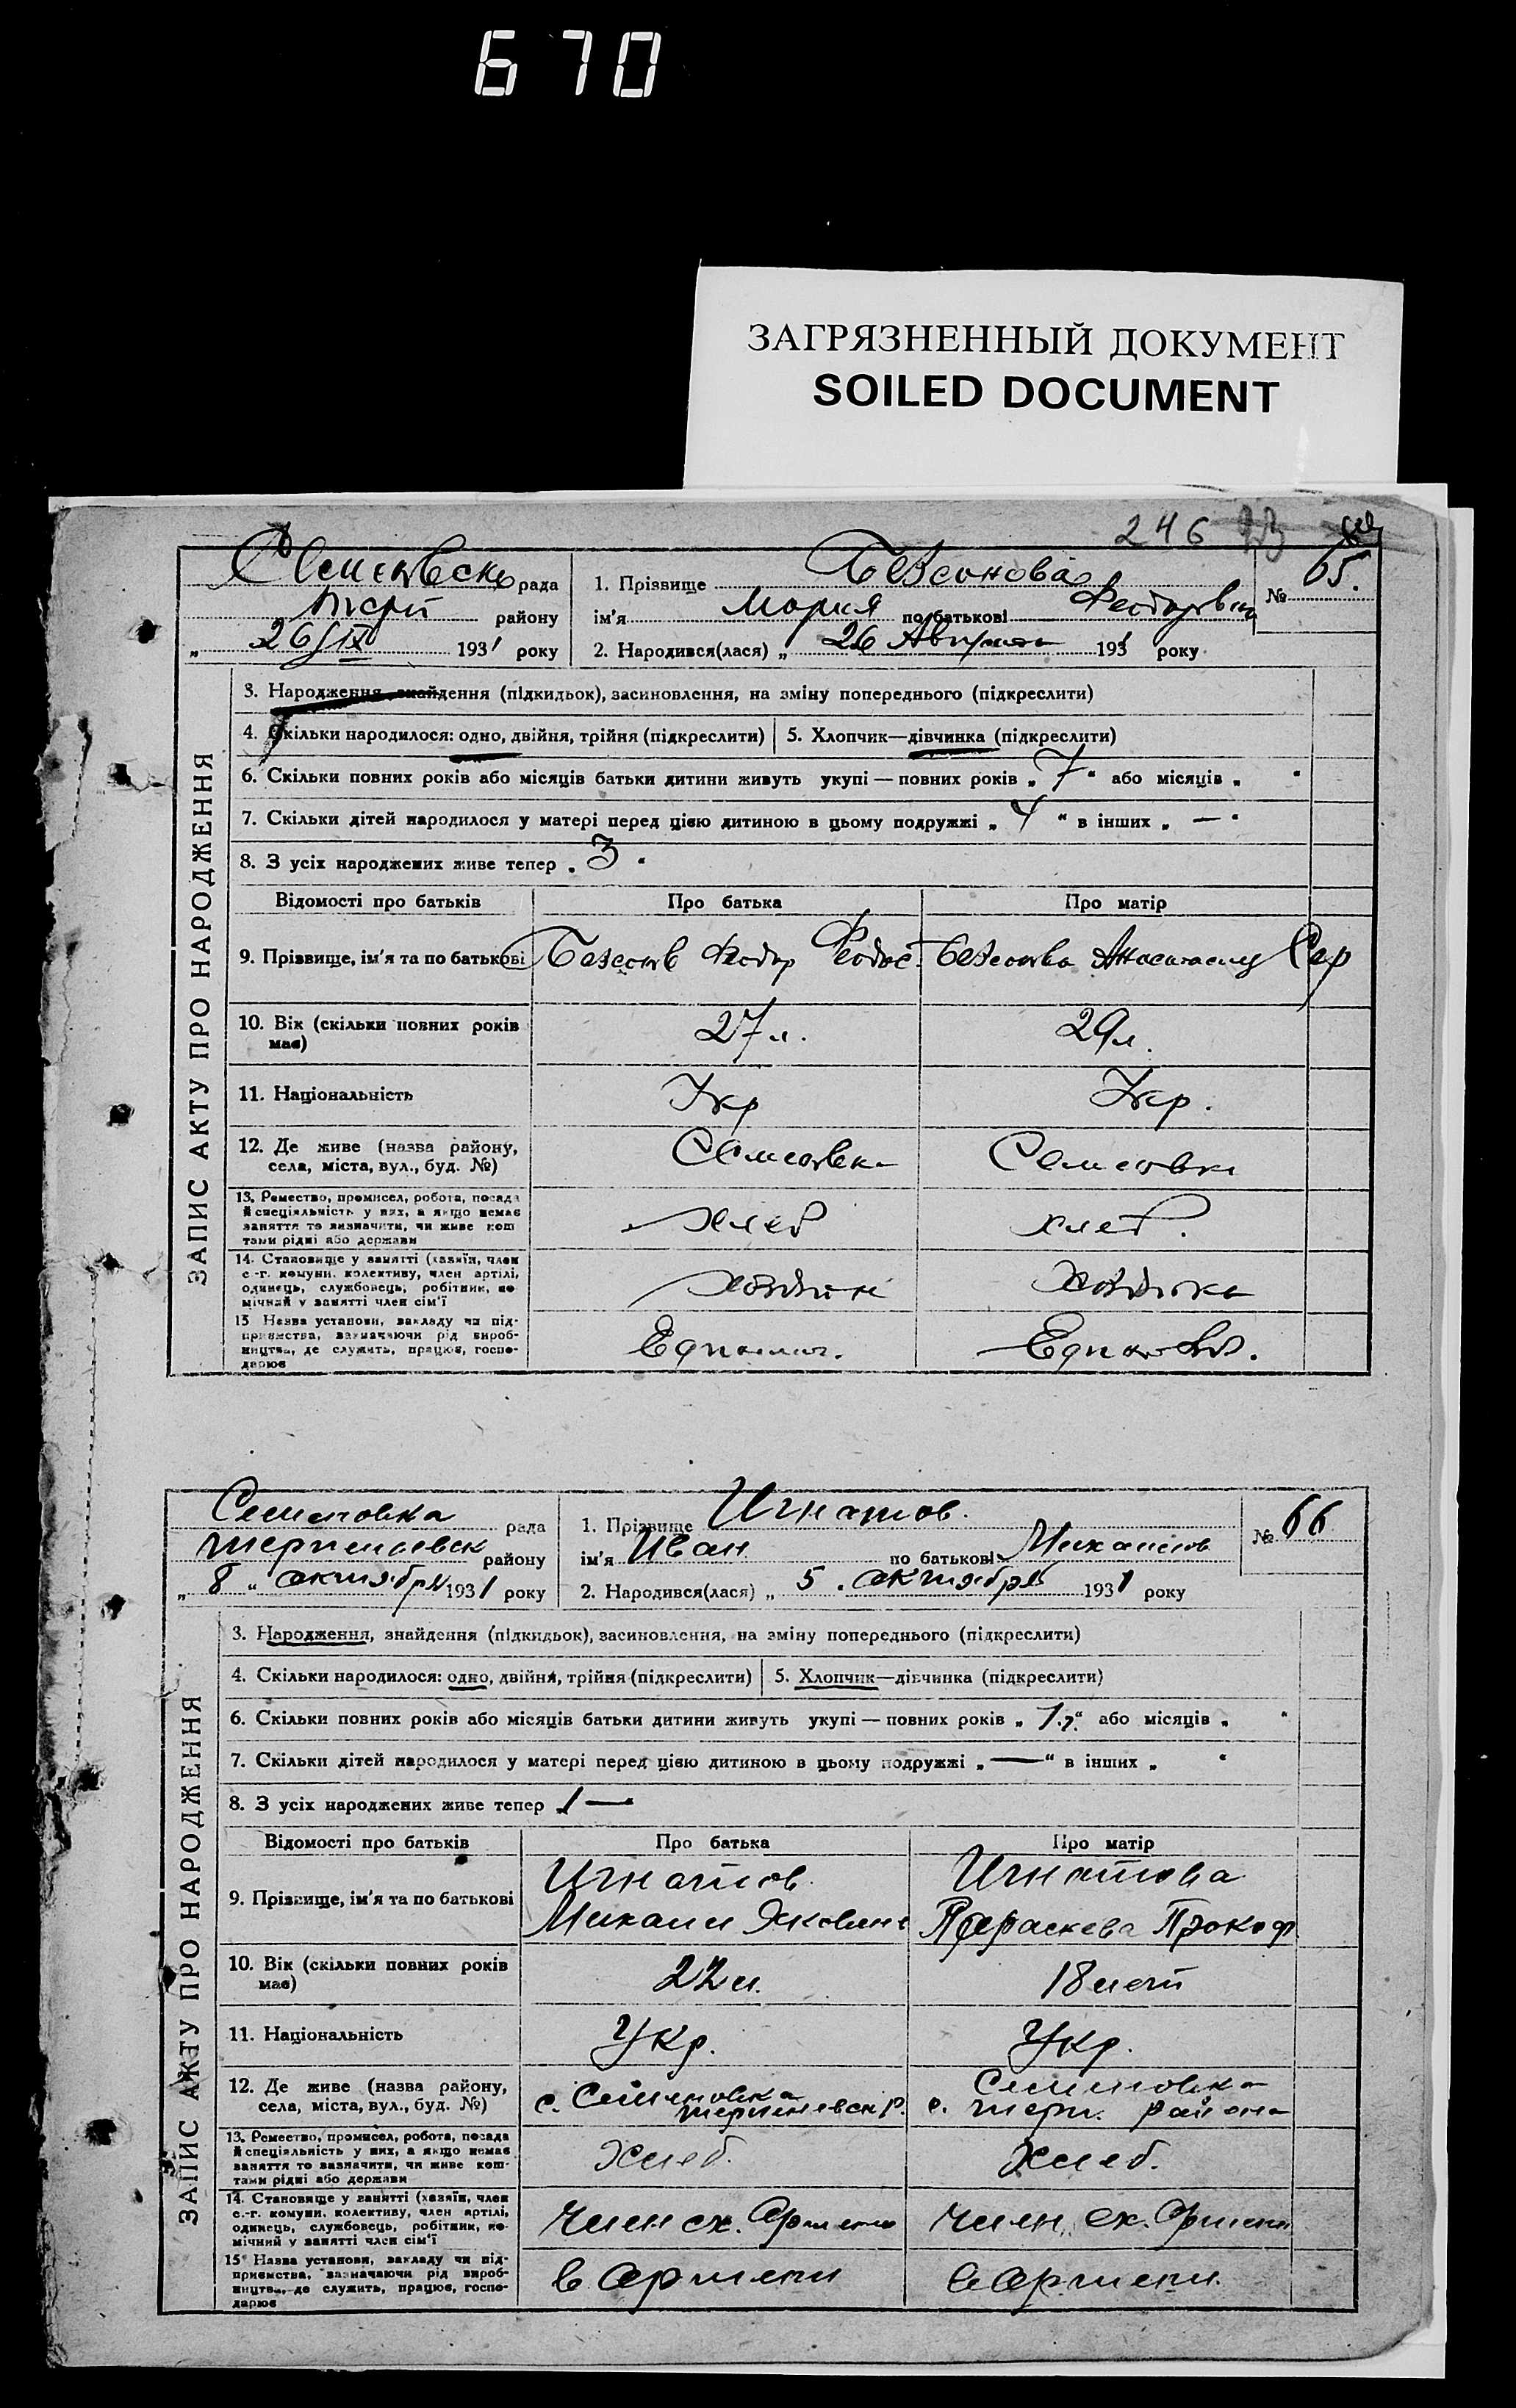 670
ЗАГРЯЗНЕННЫЙ ДОКУМЕНТ
SOILED DOCUMENT
246
рада
району
26/IX 1931 року
1. Прізвище Безсонова
ім'я Мария по батькові
2. Народився(лася) „ 26 Августа 1931 року
№ 65.
ЗАПИС АКТУ ПРО НАРОДЖЕННЯ
3. Народження, знайдення (підкидьок), засиновлення, на зміну попереднього (підкреслити)
4. Скільки народилося: одно, двійня, трійня (підкреслити) 5. Хлопчик—дівчинка (підкреслити)
6. Скільки повних років або місяців батьки дитини живуть укупі — повних років „ 7 “ або місяців „ “
7. Скільки дітей народилося у матері перед цією дитиною в цьому подружжі „ 4 “ в інших „ — “
8. З усіх народжених живе тепер „ 3 “
Відомості про батьків Про батька Про матір
9. Прізвище, ім'я та по батькові
10. Вік (скільки повних років має) 27 л. 29 л.
11. Національність Укр Укр.
12. Де живе (назва району, села, міста, вул., буд. №)
13. Ремество, промисел, робота, посада
й спеціяльність у них, а якщо немає
заняття то визначити, чи живе кош
тами рідні або держави
хлеб хлеб.
14. Становище у занятті (хазяїн, член
с.-г. комуни, колективу, член артілі,
одинець, службовець, робітник, по
мічний у занятті член сім'ї
15 Назва установи, закладу чи під-
приємства, зазначаючи рід вироб-
ництва, де служить, працює, госпо-
дарює
Семеновка рада
району
„ 8 “ октября 1931 року
1. Прізвище Игнатов.
ім'я Иван по батькові
2. Народився(лася) „ 5 . октября 1931 року
№ 66
ЗАПИС АКТУ ПРО НАРОДЖЕННЯ
3. Народження, знайдення (підкидьок), засиновлення, на зміну попереднього (підкреслити)
4. Скільки народилося: одно, двійня, трійня (підкреслити) 5. Хлопчик—дівчинка (підкреслити)
6. Скільки повних років або місяців батьки дитини живуть укупі — повних років „ 1 г. “ або місяців „ “
7. Скільки дітей народилося у матері перед цією дитиною в цьому подружжі „ — “ в інших „ “
8. З усіх народжених живе тепер 1 —
Відомості про батьків Про батька Про матір
9. Прізвище, ім'я та по батькові
Игнатов Игнатова
Михаил Яковлев Параскева Прокоф
10. Вік (скільки повних років має) 22 л. 18 лет
11. Національність Укр. Укр.
12. Де живе (назва району, села, міста, вул., буд. №)
с. Семеновка Семеновка
с. района
13. Ремество, промисел, робота, посада
й спеціяльність у них, а якщо немає
заняття то зазначити, чи живе кош-
тами рідні або держави
Хлеб. Хлеб.
14. Становище у занятті (хазяїн, член
с.-г. комуни, колективу, член артілі,
одинець, службовець, робітник, по-
мічний у занятті член сім'ї
Член сх. Артели Член сх. Артели
15 Назва установи, закладу чи під-
приємства, зазначаючи рід вироб-
ництва, де служить, працює, госпо-
дарює
в Артели в Артели.